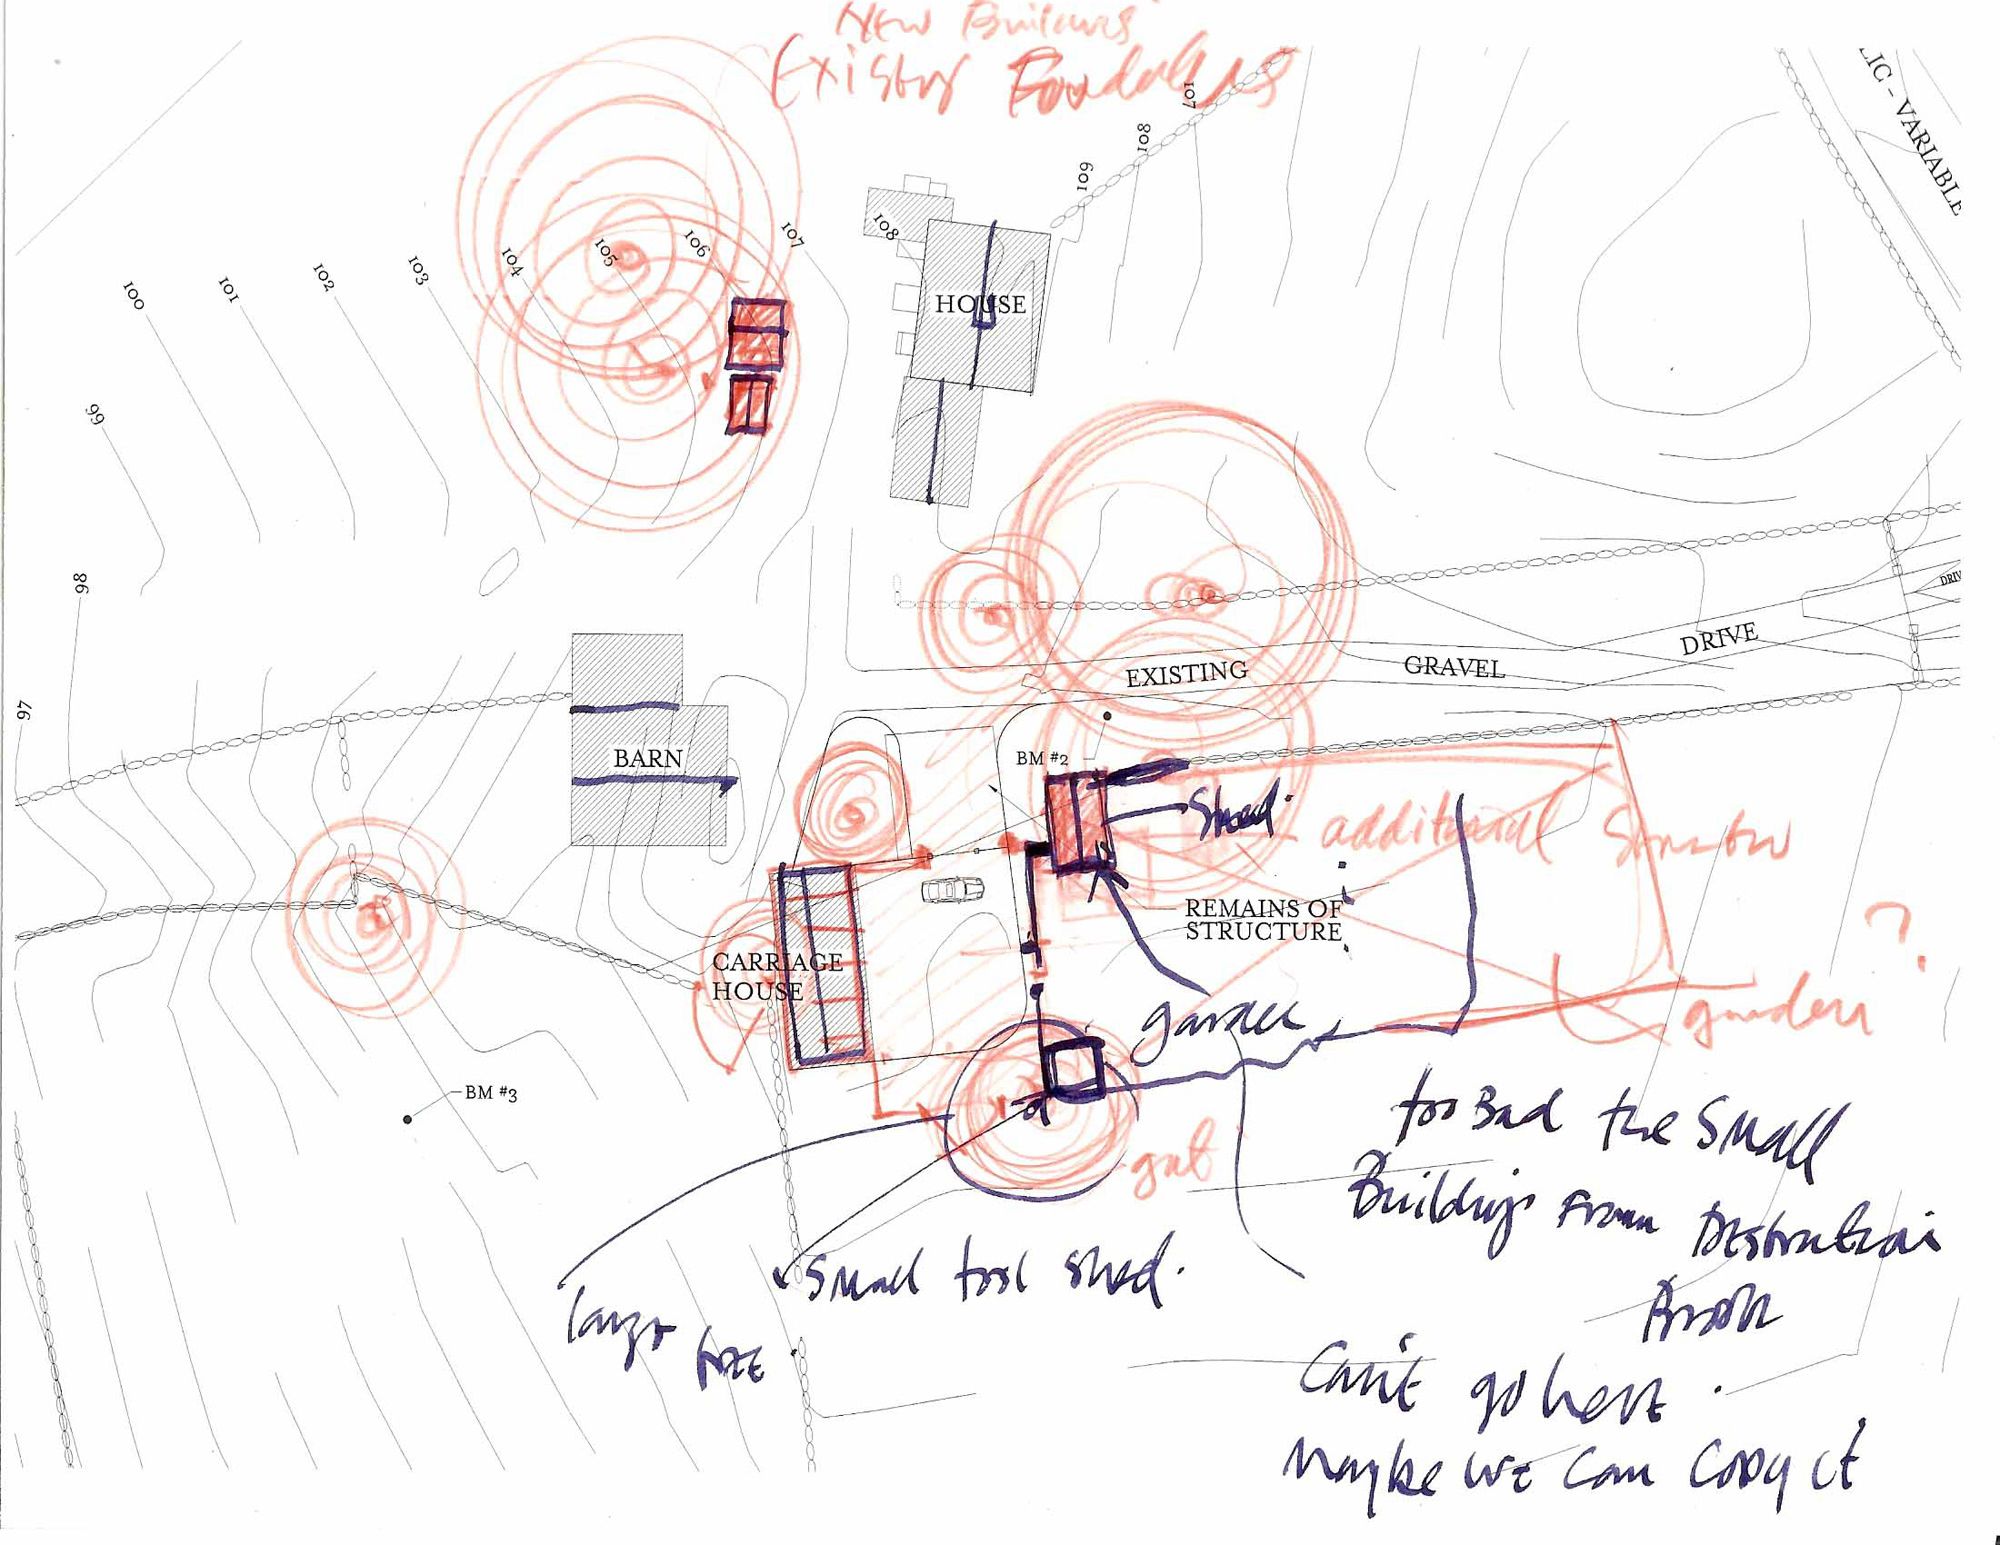 New Buildings
Existing Foundations
107
108
109
LIC - VARIABLE
108
107
106
105
104
103
102
101
100
HOUSE
99
98
97
DRIV
DRIVE
GRAVEL
EXISTING
BM #2
BARN
Shed.
additional
REMAINS OF
STRUCTURE
CARRIAGE
HOUSE
garden
garden ?
BM #3
too Bad the Small
Buildings From Destruction
Brook
Can't go here.
Maybe we can copy it
Small tool shed.
large tree